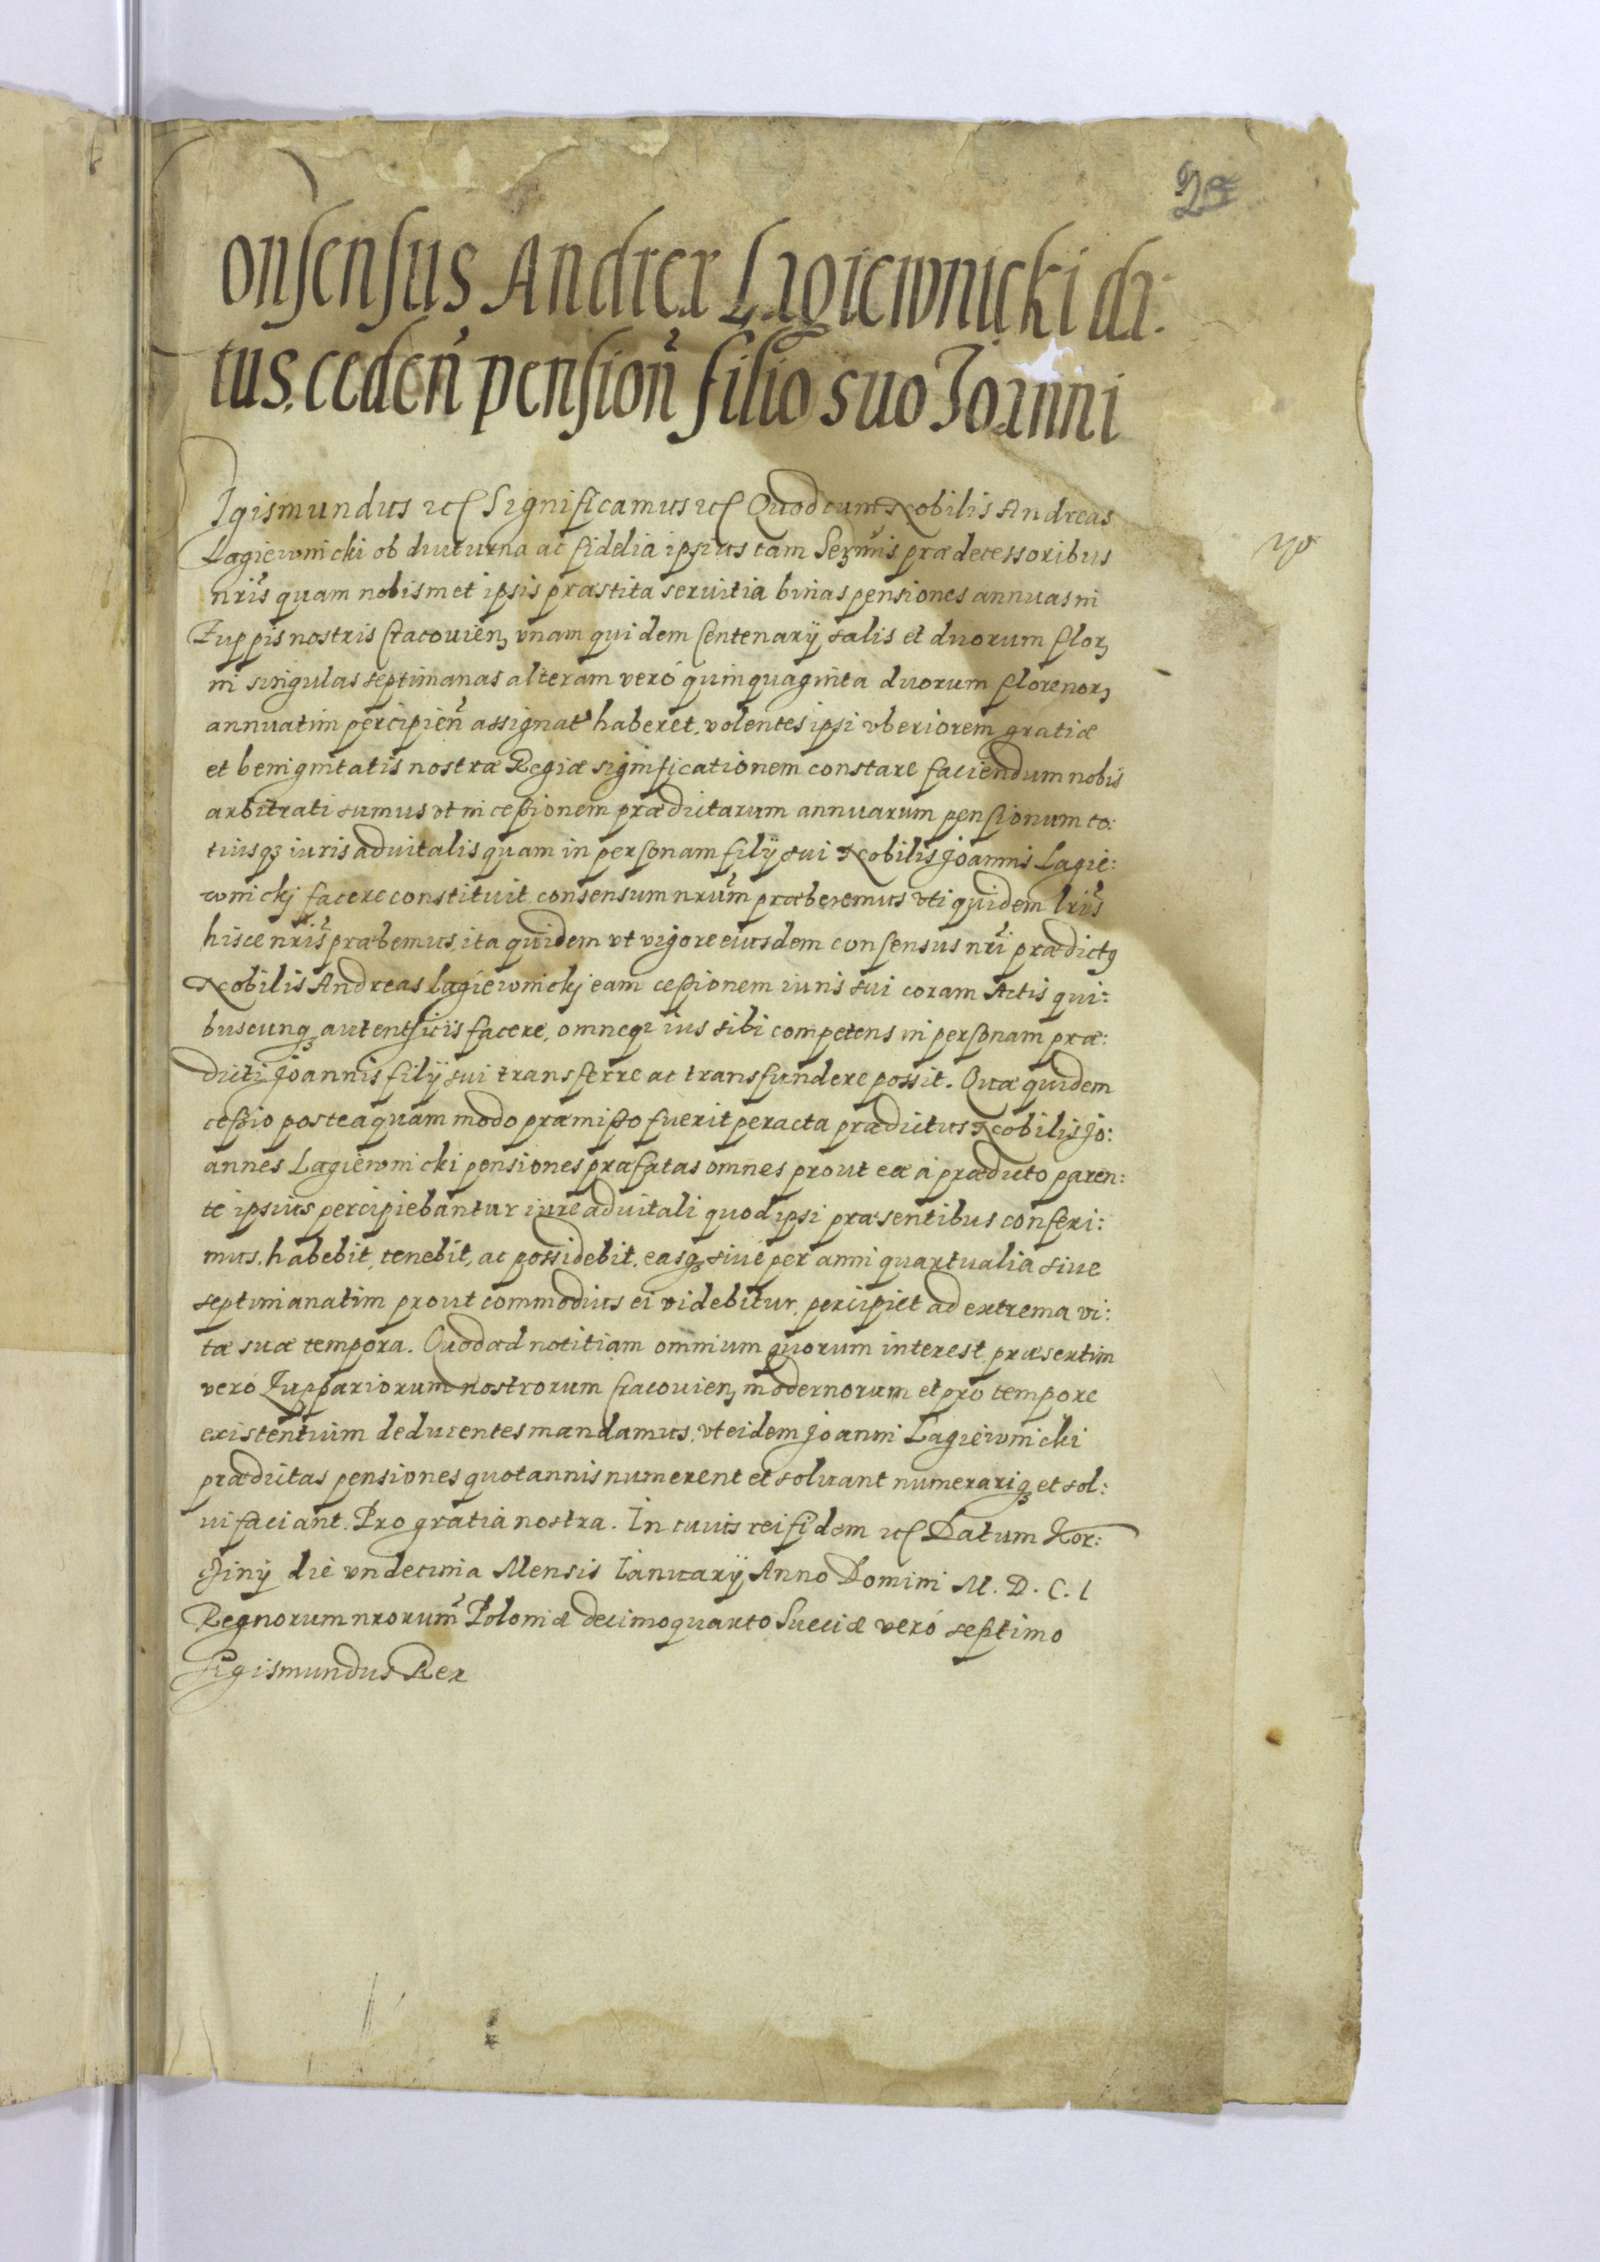 onsensus Andreæ Lagiewnicki da:
tus, ceden̄ pension̄ filio suo Joanni
Igismundus etc̄ Significamus etc̄ Quod cum Nobilis Andreas
Lagiewnicki ob diuturna ac fidelia ipsius tam Serm̄is prædecessoribus
nr̄is quam nobismet ipsis præstita seruitia binas pensiones annuas in
Zuppis nostris Cracouien̄ vnam quidem Centenarij salis et duorum flor̄
in singulas septimanas alteram veró quinquaginta duorum florenor̄
annuatim percipien̄ assignat haberet, volentes ipsi vberiorem gratiæ
et benignitatis nostræ Regiæ significationem constare faciendum nobis
arbitrati sumus vt in cessionem prædictarum annuarum pensionum to:
tiusq3 iuris aduitalis quam in personam filij sui Nobilis Joannis Lagie:
wnickj facere constituit consensum nrum̄ præberemus vti quidem lr̄is
hisce nr̄is præbemus, ita quidem vt vigore eiusdem consensus nr̄i prædictꝰ
Nobilis Andreas Lagiewnickj eam cessionem iuris sui coram Actis qui:
buscunq3 autenticis facere, omneq3 ius sibi competens in personam præ:
dicti Joannis filij sui transferre ac transfundere possit. Quæ quidem
cessio posteaquam modo præmisso fuerit peracta prædictus Nobilis Jo:
annes Lagiewnicki pensiones præfatas omnes prout eæ á prædicto paren:
te ipsius percipiebantur iure aduitali quod ipsi præsentibus conferi:
mus, habebit, tenebit, ac possidebit, easq3 siue per anni quartualia siue
septimanatim prout commodius ei videbitur, percipiet ad extrema vi:
tæ suæ tempora. Quod ad notitiam omnium quorum interest præsertim
veró Zuppariorum nostrorum Cracouien̄ modernorum et pro tempore
existentium deducentes mandamus, vt eidem Joanni Lagiewnicki
prædictas pensiones quotannis numerent et soluant numerariq3 et sol:
ui faciant. Pro gratia nostra. In cuius rei fidem etc̄ Datum Kor:
ziny die vndecima Mensis Januarij Anno Domini M. D. C. I
Regnorum nrorum̄ Poloniæ decimoquarto Sueciæ veró septimo
Sigismundus Rex